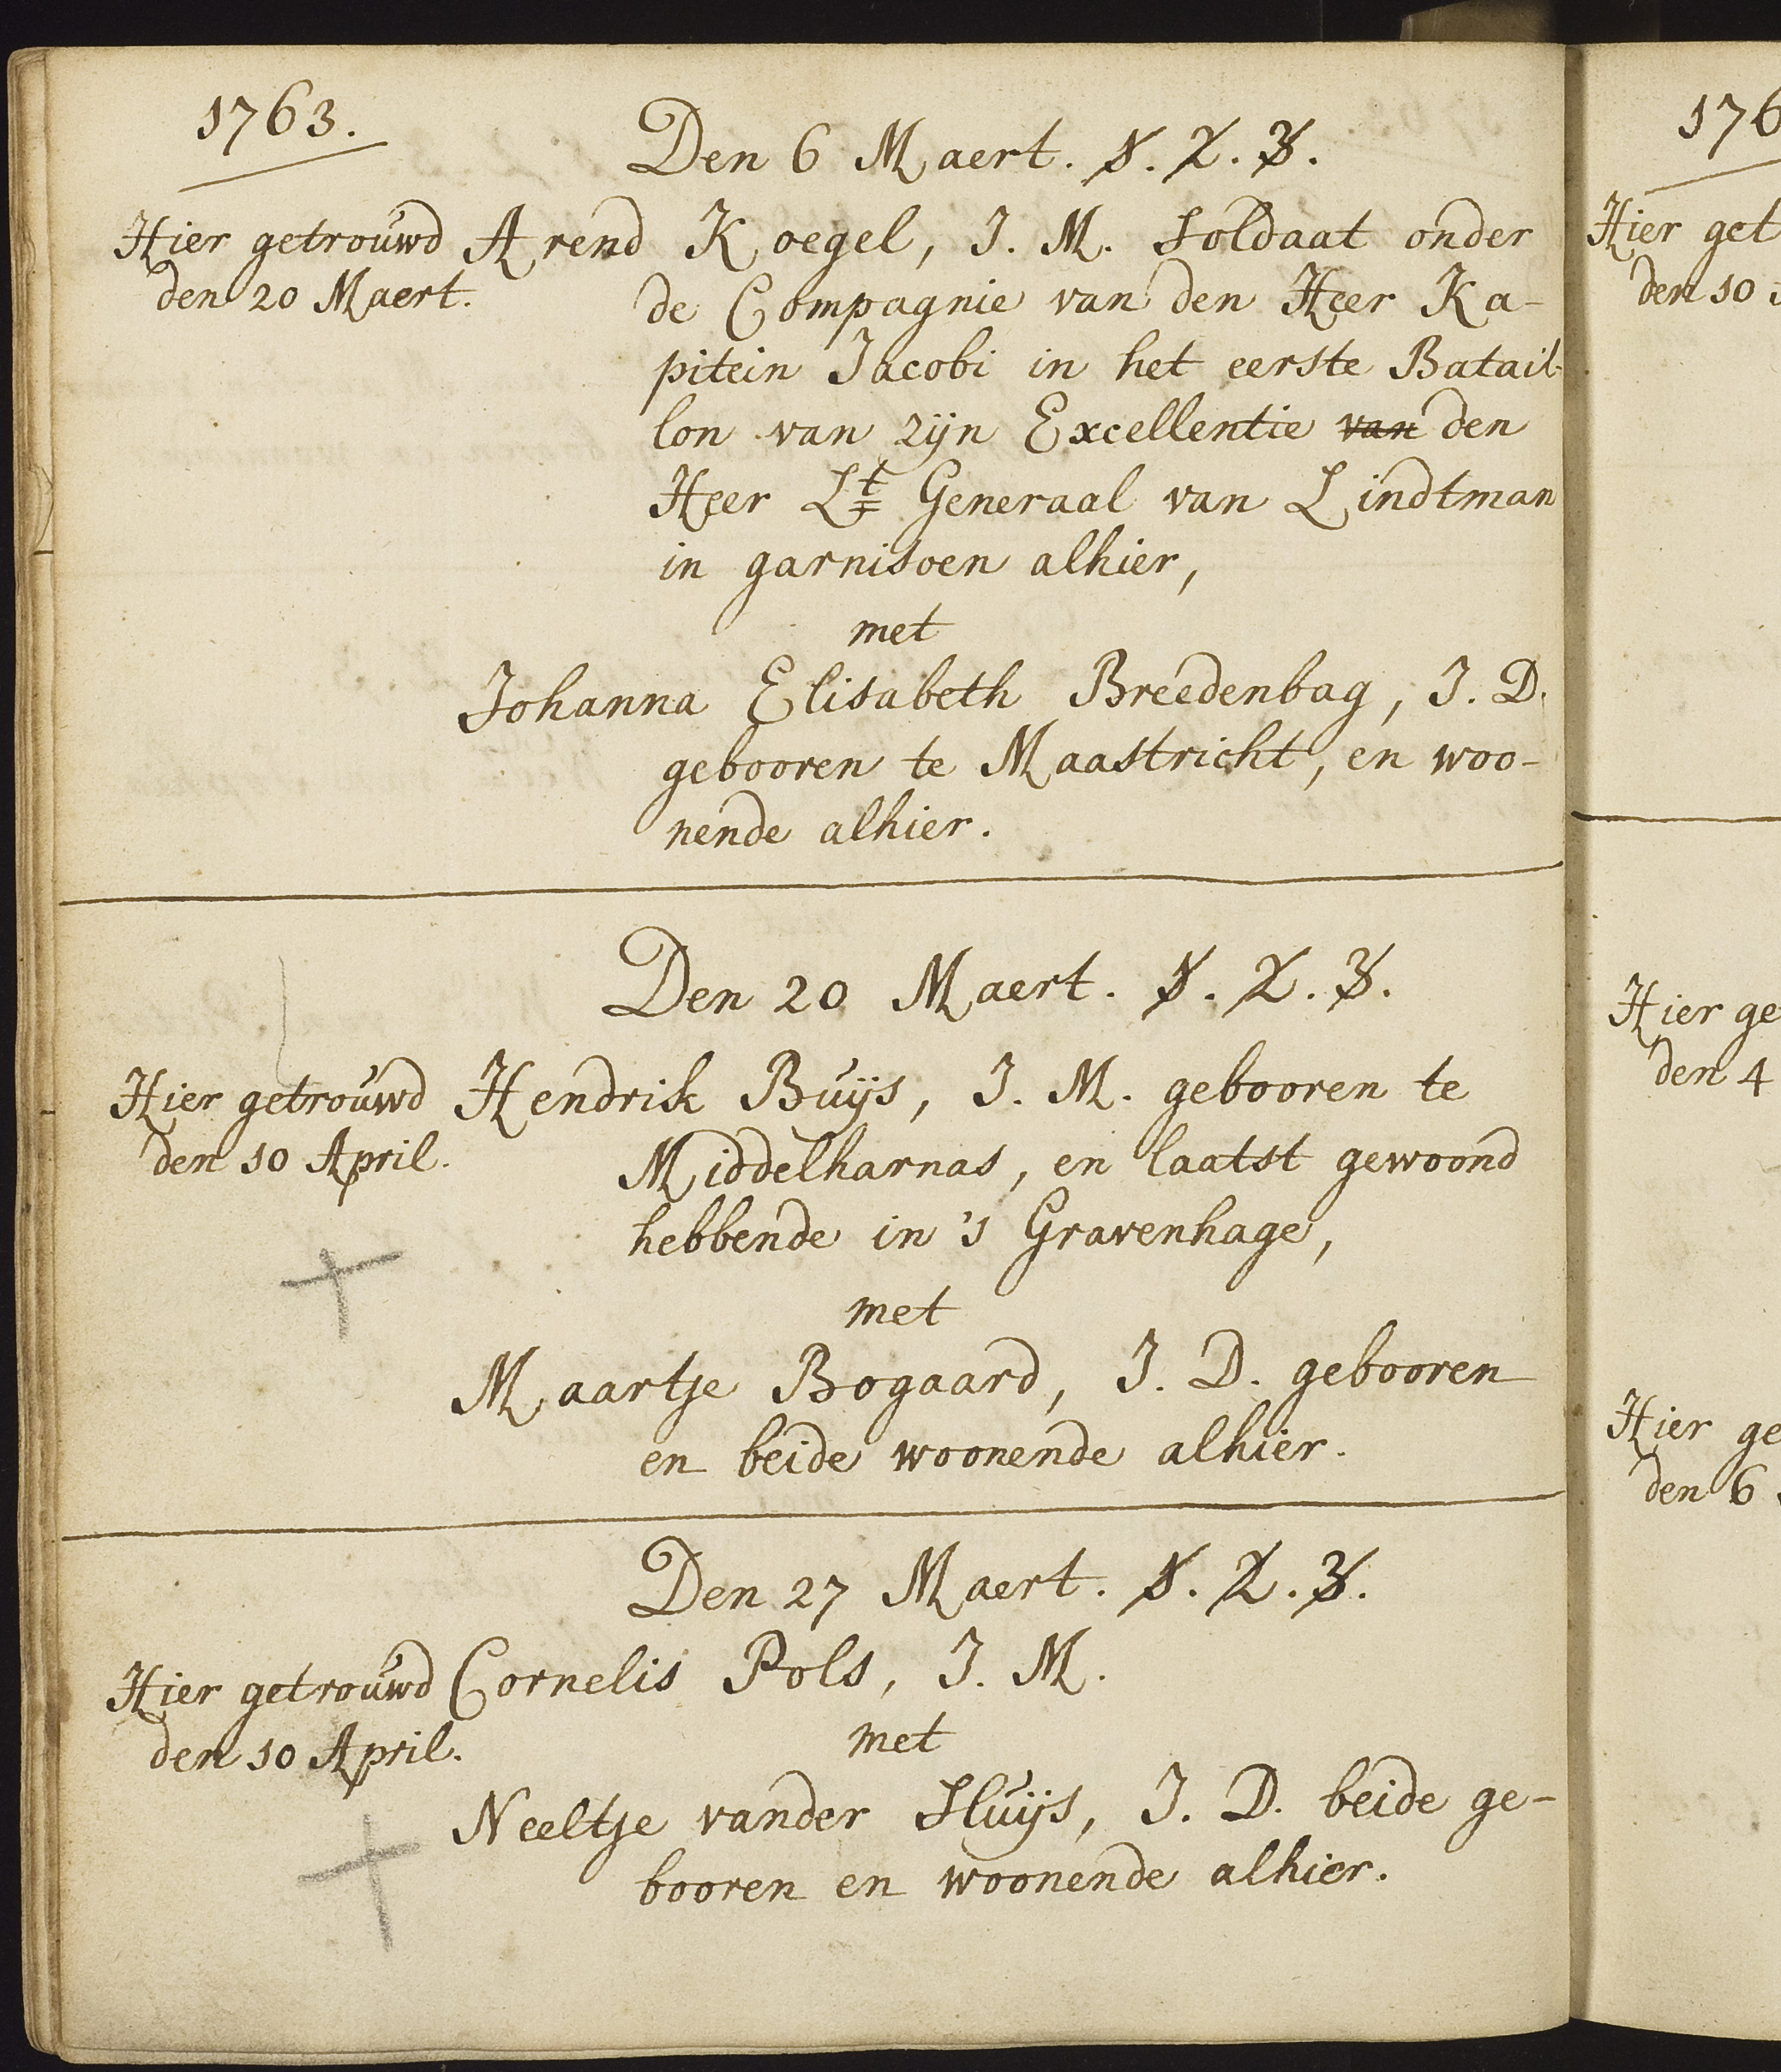 1763.
Den 6 Maert. 1. 2. 3.
Hier getrouwd
den 20 Maert.
Arend Koegel, J. M. Soldaat onder
de Compagnie van den Heer Ka-
pitein Jacobi in het eerste Batail-
lon van zijn Excellentie van den
Heer Lt Generaal van Lindtman
in garnisoen alhier,
met
Johanna Elisabeth Breedenbag, J. D.
gebooren te Maastricht, en woo-
nende alhier.
Den 20 Maert. 1. 2. 3.
Hier getrouwd
den 10 April.
Hendrik Buijs, J. M. gebooren te
Middelharnas, en laatst gewoond
hebbende in 's Gravenhage,
met
Maartje Bogaard, J. D. gebooren
en beide woonende alhier.
Den 27 Maert. 1. 2. 3.
Hier getrouwd
den 10 April.
Cornelis Pols, J. M.
met
Neeltje vander Sluijs, J. D. beide ge-
booren en woonende alhier.
176
Hier get
den 10
Hier ge
den 4
Hier ge
den 6